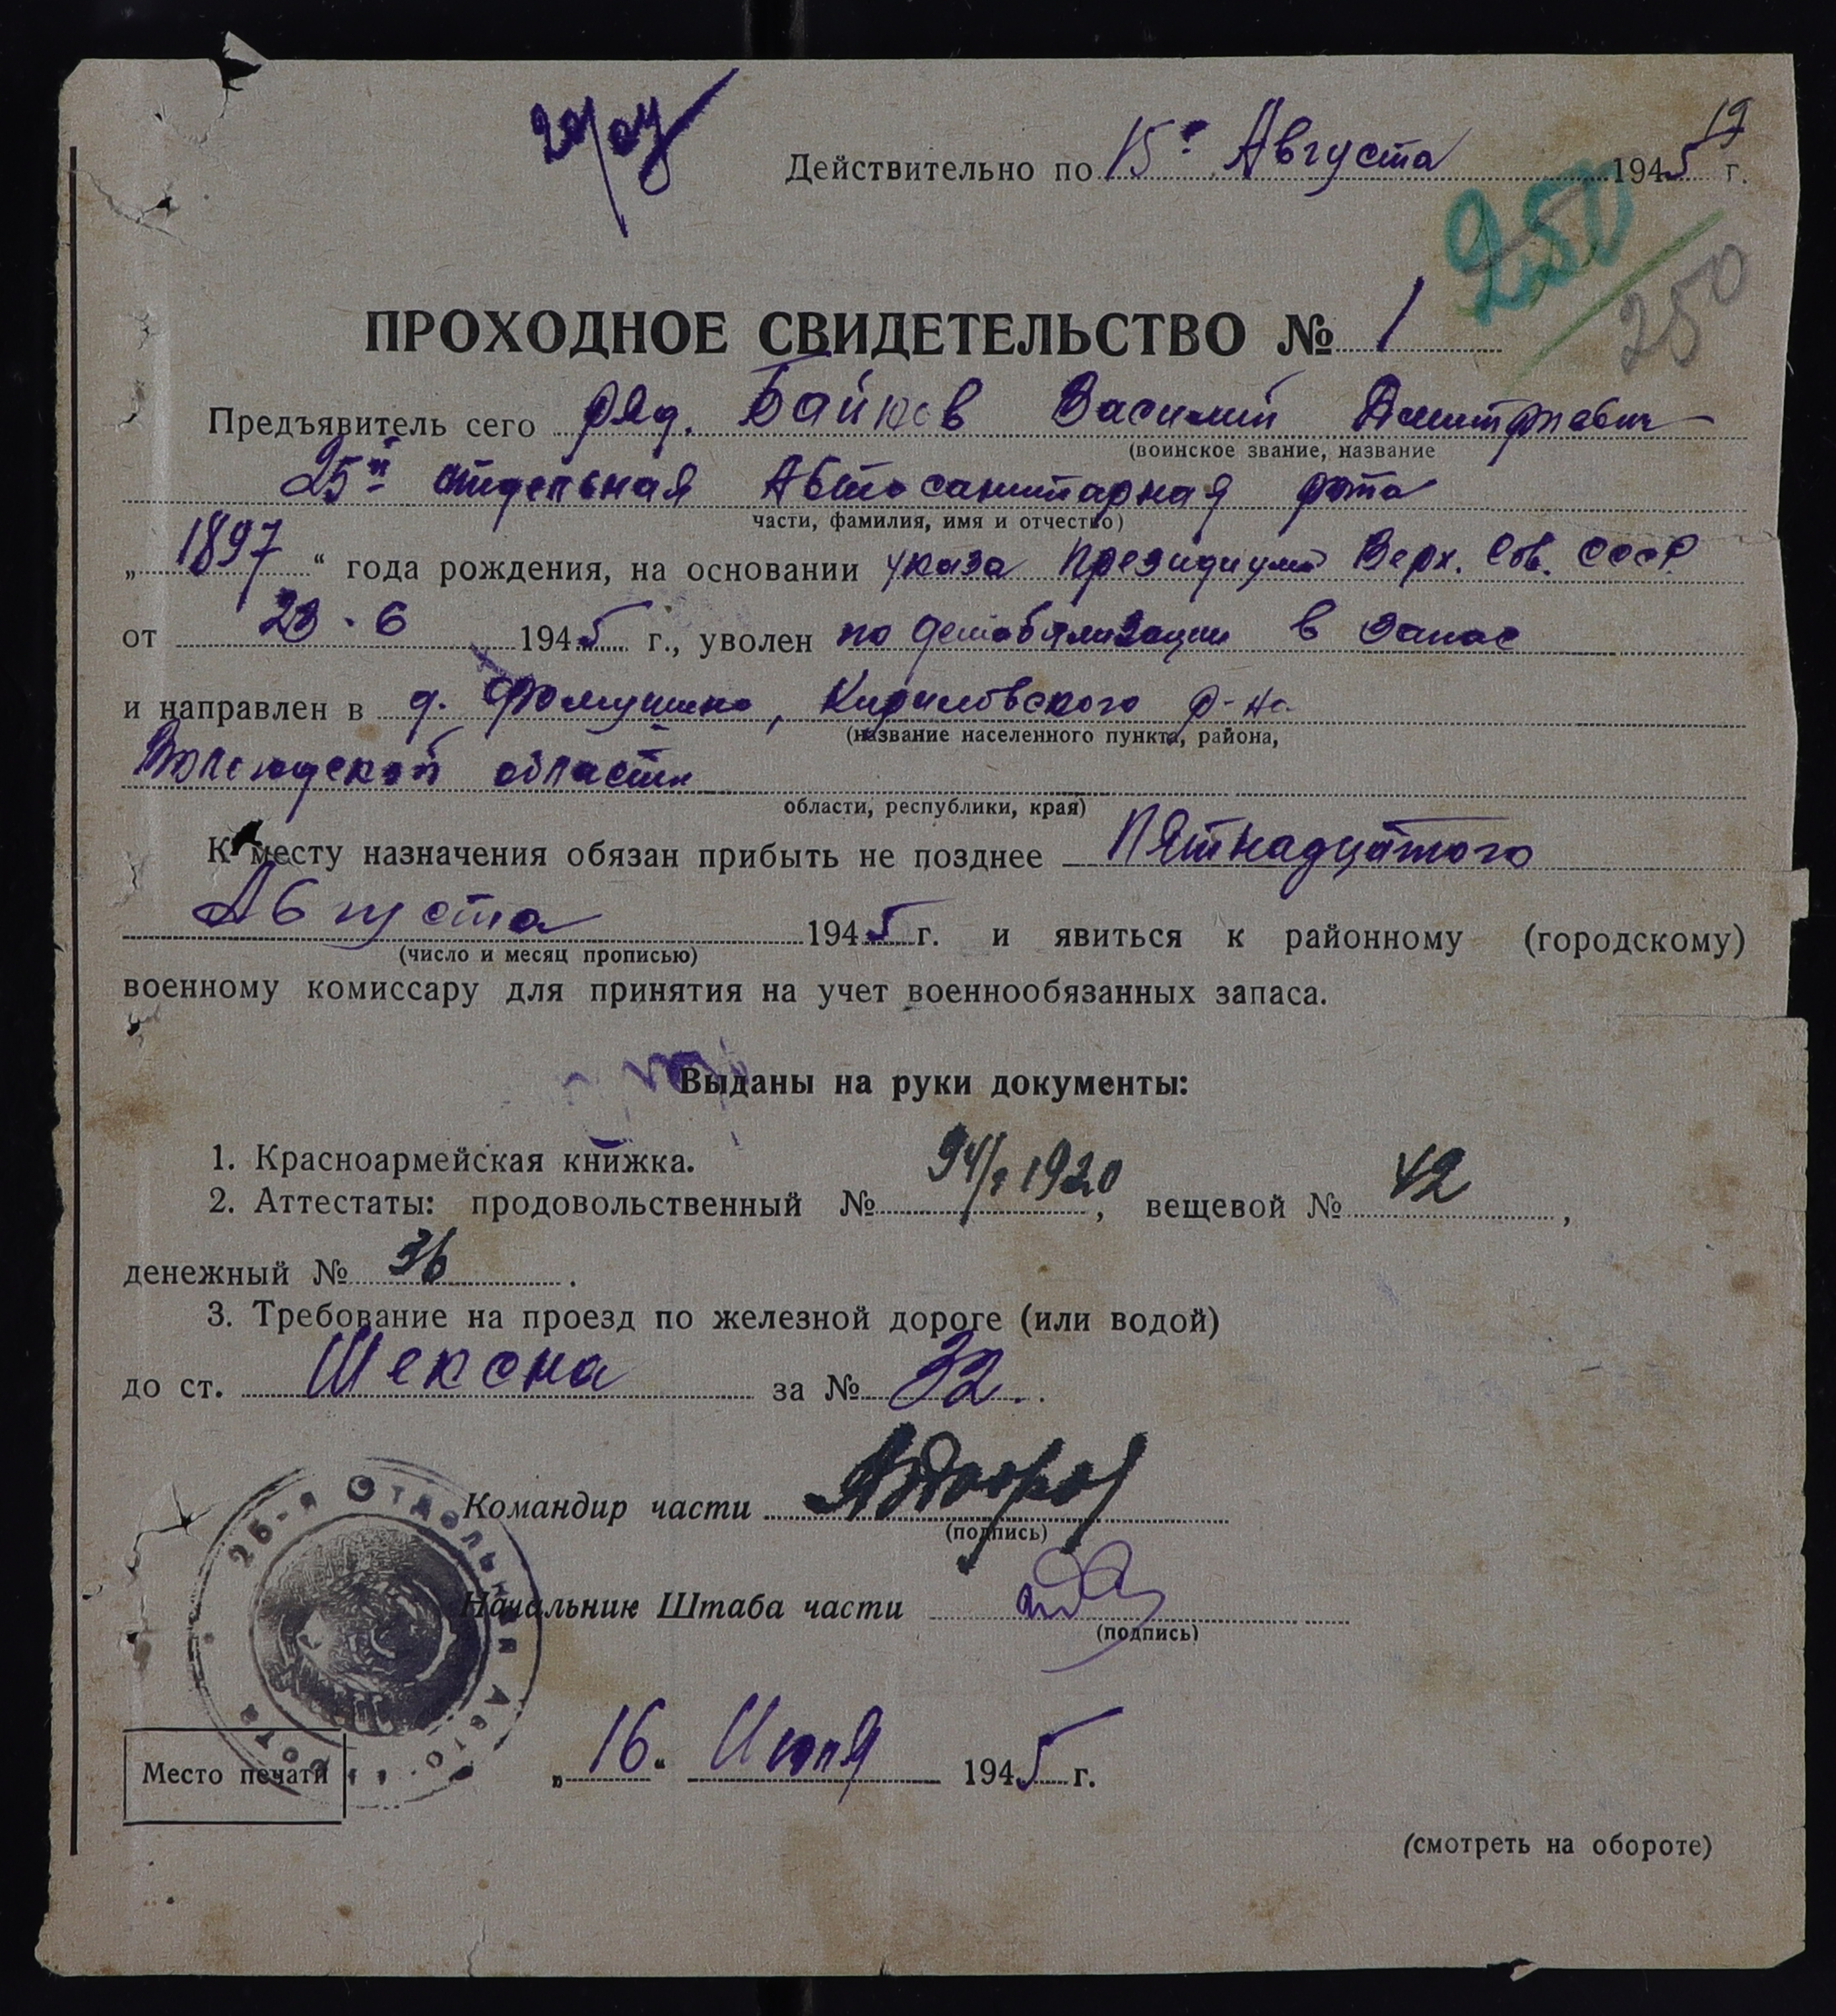 19
Действительно по 15го Августа 1945 г.
250
250
ПРОХОДНОЕ СВИДЕТЕЛЬСТВО № 1
Предъявитель сего ряд. Байков Василий Дмитриевич
(воинское звание, название
25й отдельная Автосанитарная рота
части, фамилия, имя и отчество)
„1897“ года рождения, на основании указа Президиума Верх. Сов. СССР
от 23.6 1945 г., уволен по демобилизации в запас
и направлен в д. Фомушино, Кириловского р-на
(название населенного пункта, района,
Вологодской области
области, республики, края)
К месту назначения обязан прибыть не позднее Пятнадцатого
Августа 1945 г. и явиться к районному (городскому)
(число и месяц прописью)
военному комиссару для принятия на учет военнообязанных запаса.
Выданы на руки документы:
1. Красноармейская книжка.
2. Аттестаты: продовольственный № 1920, вещевой № 42,
денежный № 36.
3. Требование на проезд по железной дороге (или водой)
до ст. Шексна за № 32.
Командир части
(подпись)
Начальник Штаба части
(подпись)
25-я Отдельная Авто рота
Место печати
„16“ Июля 1945 г.
(смотреть на обороте)